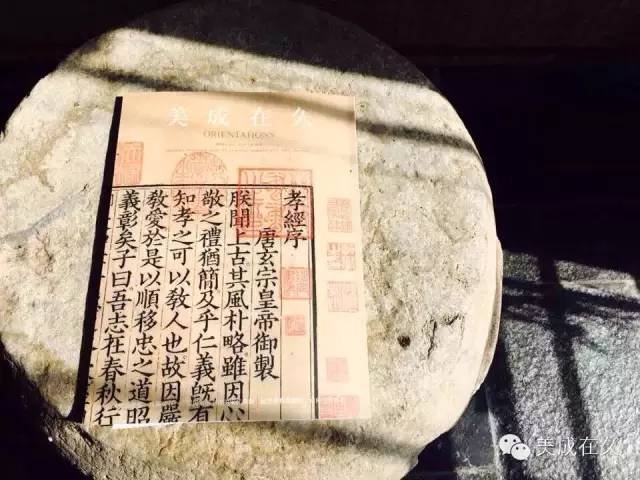 美成在久
ORIENTATIONS
孝經序
唐玄宗皇帝御製
朕聞上古其風朴略雖因心
敬之禮猶簡及乎仁義旣有
知孝之可以敎人也故因嚴
敎愛於是以順移忠之道昭
義彰矣子曰吾志在春秋行
美成在久